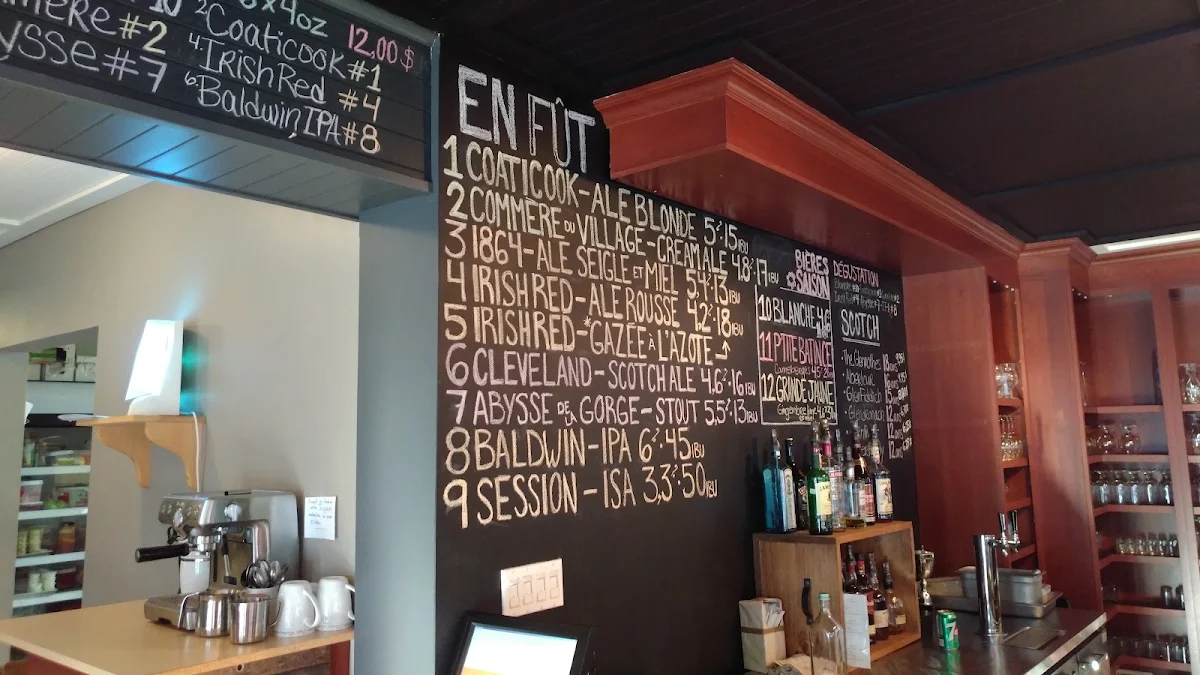 6x4oz 12.00 $
#2 2 Coaticook #1
#7 4. Irish Red #4
6 Baldwin, IPA #8
EN FÛT
1 COATICOOK-ALE BLONDE 5% 15 IBU
2 COMMÈRE DU VILLAGE-CREAM ALE 4.8% 17 IBU
3 1864-ALE SEIGLE ET MIEL 5.4% 13 IBU
4 IRISH RED-ALE ROUSSE 4,2% 18 IBU
5 IRISH RED-*GAZÉE À L'AZOTE
6 CLEVELAND-SCOTCH ALE 4,6% 16 IBU
7 ABYSSE DE LA GORGE-STOUT 5,5% 13 IBU
8 BALDWIN-IPA 6% 45 IBU
9 SESSION-ISA 3,3% 50 IBU
BIÈRES
SAISON
10 BLANCHE
11 P'TITE BATINCE
12 GRANDE JAUNE
DÉGUSTATION
SCOTCH